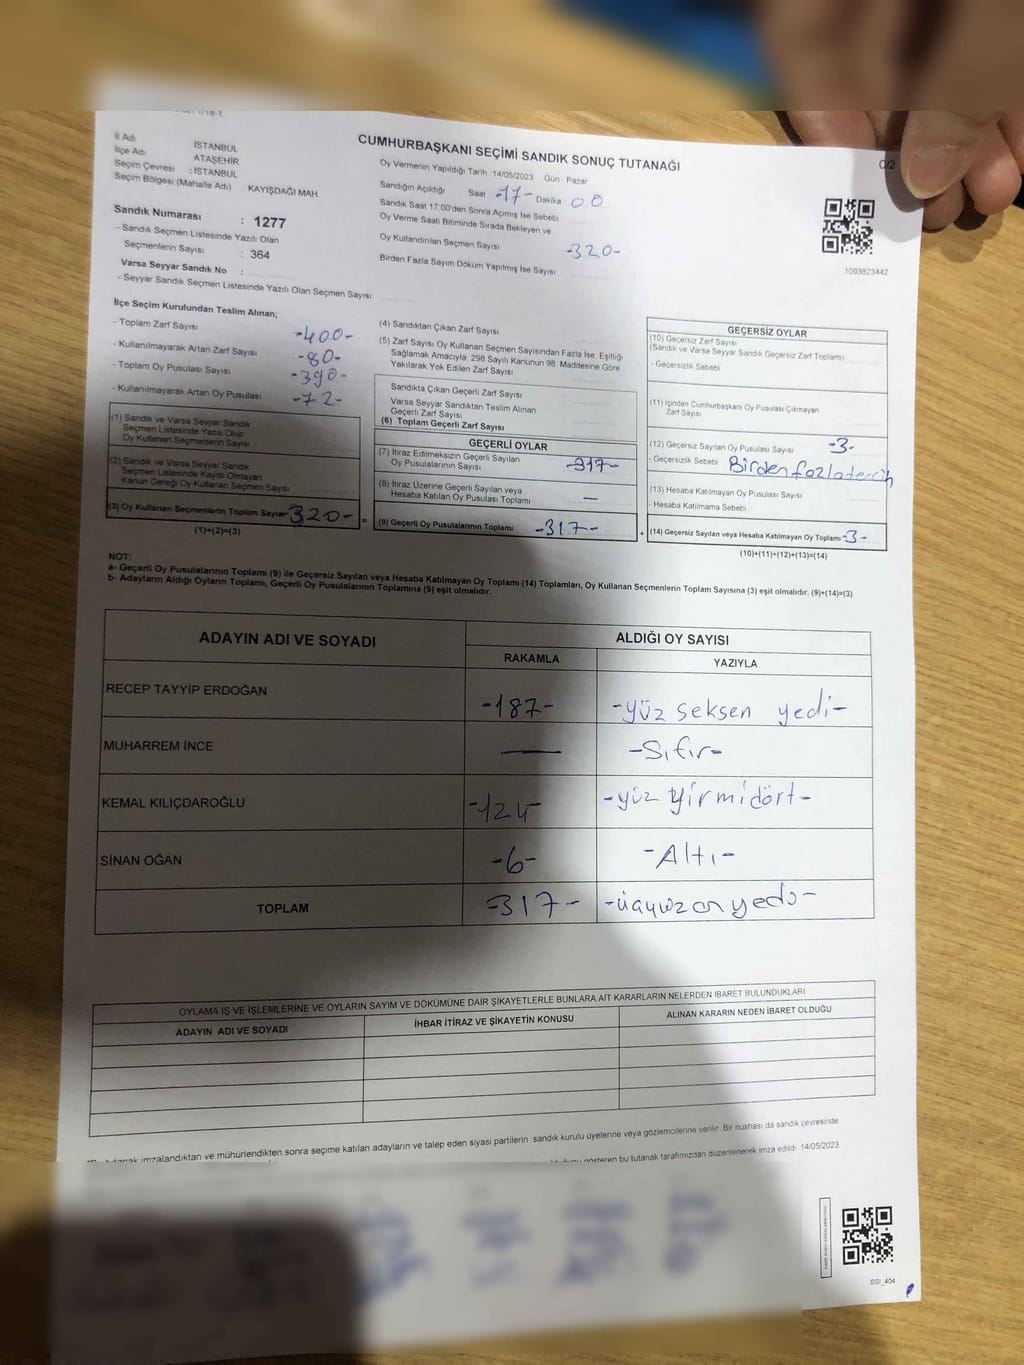 CUMHURBAŞKANI SEÇİMİ SANDIK SONUÇ TUTANAĞI
C/2
İl Adı İSTANBUL
İlçe Adı ATAŞEHİR
Seçim Çevresi : İSTANBUL
Seçim Bölgesi (Mahalle Adı) KAYIŞDAĞI MAH
Sandık Numarası : 1277
- Sandık Seçmen Listesinde Yazılı Olan
Seçmenlerin Sayısı : 364
Varsa Seyyar Sandık No :
- Seyyar Sandık Seçmen Listesinde Yazılı Olan Seçmen Sayısı:
Oy Vermenin Yapıldığı Tarih 14/05/2023 Gün Pazar
Sandığın Açıldığı Saat -17- Dakika 00
Sandık Saat 17:00'den Sonra Açımış İse Sebebi
Oy Verme Saati Bitiminde Sırada Bekleyen ve
Oy Kullandırılan Seçmen Sayısı -320-
Birden Fazla Sayım Döküm Yapılmış İse Sayısı
1093823442
İlçe Seçim Kurulundan Teslim Alınan;
- Toplam Zarf Sayısı -400-
- Kullanılmayarak Artan Zarf Sayısı -80-
- Toplam Oy Pusulası Sayısı -390-
- Kullanılmayarak Artan Oy Pusulası -72-
(1) Sandık ve Varsa Seyyar Sandık
Seçmen Listesinde Yazılı Olup
Oy Kullanan Seçmenlerin Sayısı
(2) Sandık ve Varsa Seyyar Sandık
Seçmen Listesinde Kaydı Olmayan
Kanun Gereği Oy Kullanan Seçmen Sayısı
(3) Oy Kullanan Seçmenlerin Toplam Sayısı -320-
(1)+(2)=(3)
=
(4) Sandıktan Çıkan Zarf Sayısı
(5) Zarf Sayısı Oy Kullanan Seçmen Sayısından Fazla İse, Eşitliği
Sağlamak Amacıyla, 298 Sayılı Kanunun 98. Maddesine Göre
Yakılarak Yok Edilen Zarf Sayısı
Sandıkta Çıkan Geçerli Zarf Sayısı
Varsa Seyyar Sandıktan Teslim Alınan
Geçerli Zarf Sayısı
(6) Toplam Geçerli Zarf Sayısı
GEÇERLİ OYLAR
(7) İtiraz Edilmeksizin Geçerli Sayılan
Oy Pusulalarının Sayısı -317-
(8) İtiraz Üzerine Geçerli Sayılan veya
Hesaba Katılan Oy Pusulası Toplamı —
(9) Geçerli Oy Pusulalarının Toplamı -317-
+
GEÇERSİZ OYLAR
(10) Geçersiz Zarf Sayısı
(Sandık ve Varsa Seyyar Sandık Geçersiz Zarf Toplamı)
- Geçersizlik Sebebi
(11) İçinden Cumhurbaşkanı Oy Pusulası Çıkmayan
Zarf Sayısı
(12) Geçersiz Sayılan Oy Pusulası Sayısı -3-
- Geçersizlik Sebebi Birden fazla tercih
(13) Hesaba Katılmayan Oy Pusulası Sayısı
- Hesaba Katılmama Sebebi
(14) Geçersiz Sayılan veya Hesaba Katılmayan Oy Toplamı -3-
(10)+(11)+(12)+(13)=(14)
NOT:
a- Geçerli Oy Pusulalarının Toplamı (9) ile Geçersiz Sayılan veya Hesaba Katılmayan Oy Toplamı (14) Toplamları, Oy Kullanan Seçmenlerin Toplam Sayısına (3) eşit olmalıdır. (9)+(14)=(3)
b- Adayların Aldığı Oyların Toplamı, Geçerli Oy Pusulalarının Toplamına (9) eşit olmalıdır.
ADAYIN ADI VE SOYADI ALDIĞI OY SAYISI
RAKAMLA YAZIYLA
RECEP TAYYİP ERDOĞAN -187- -yüz seksen yedi-
MUHARREM İNCE — -Sıfır-
KEMAL KILIÇDAROĞLU -124- -yüz yirmidört-
SİNAN OĞAN -6- -Altı-
TOPLAM -317-
OYLAMA İŞ VE İŞLEMLERİNE VE OYLARIN SAYIM VE DÖKÜMÜNE DAİR ŞİKAYETLERLE BUNLARA AİT KARARLARIN NELERDEN İBARET BULUNDUKLARI
ADAYIN ADI VE SOYADI İHBAR İTİRAZ VE ŞİKAYETİN KONUSU ALINAN KARARIN NEDEN İBARET OLDUĞU
imzalandıktan ve mühürlendikten sonra seçime katılan adayların ve talep eden siyasi partilerin sandık kurulu üyelerine veya gözlemcilerine verilir. Bir nüshası da sandık çevresinde
gösteren bu tutanak tarafımızdan düzenlenerek imza edildi. 14/05/2023
SSI_404